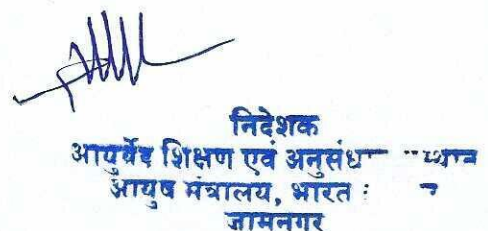 निदेशक
आयुर्वेद शिक्षण एवं
आयुष मंत्रालय, भारत
जामनगर